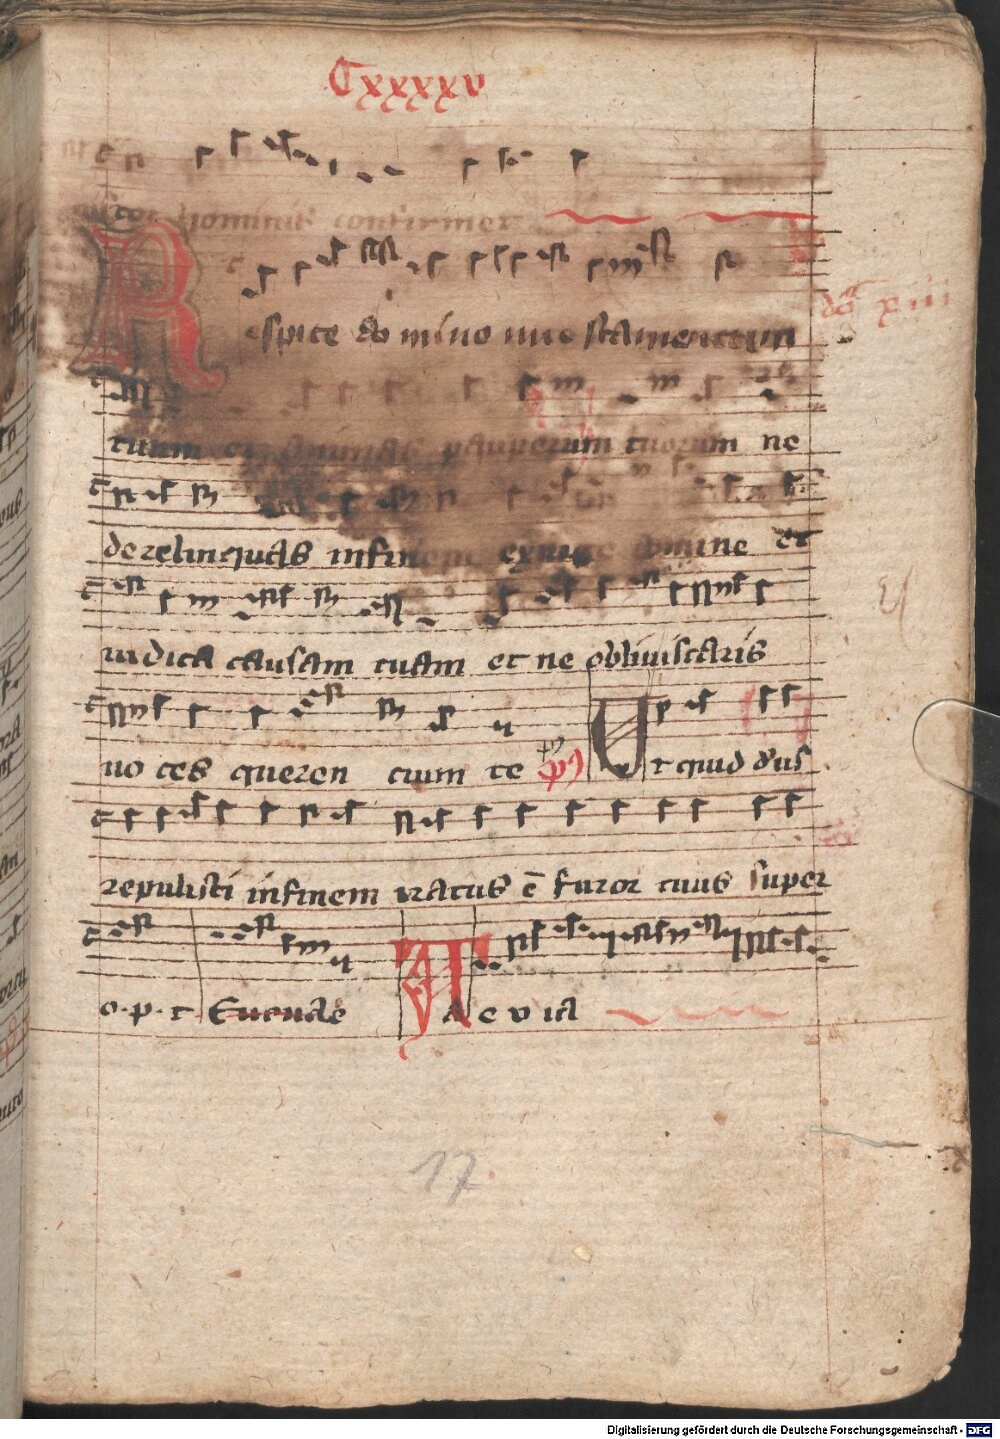 Cxxxxv
hominis confirmet
Respice domino in testamentum
do xiii
tuum et animas pauperum tuorum ne
derelinquas infinem exurge domine et
iudica causam tuam et ne obliuiscaris
uo ces queren cium te ps Ut quid d'us
repulisti infinem iratus ē furor tuus super
o. p. t Euouae Ae v ia
17
Digitalisierung gefördert durch die Deutsche Forschungsgemeinschaft - DFG